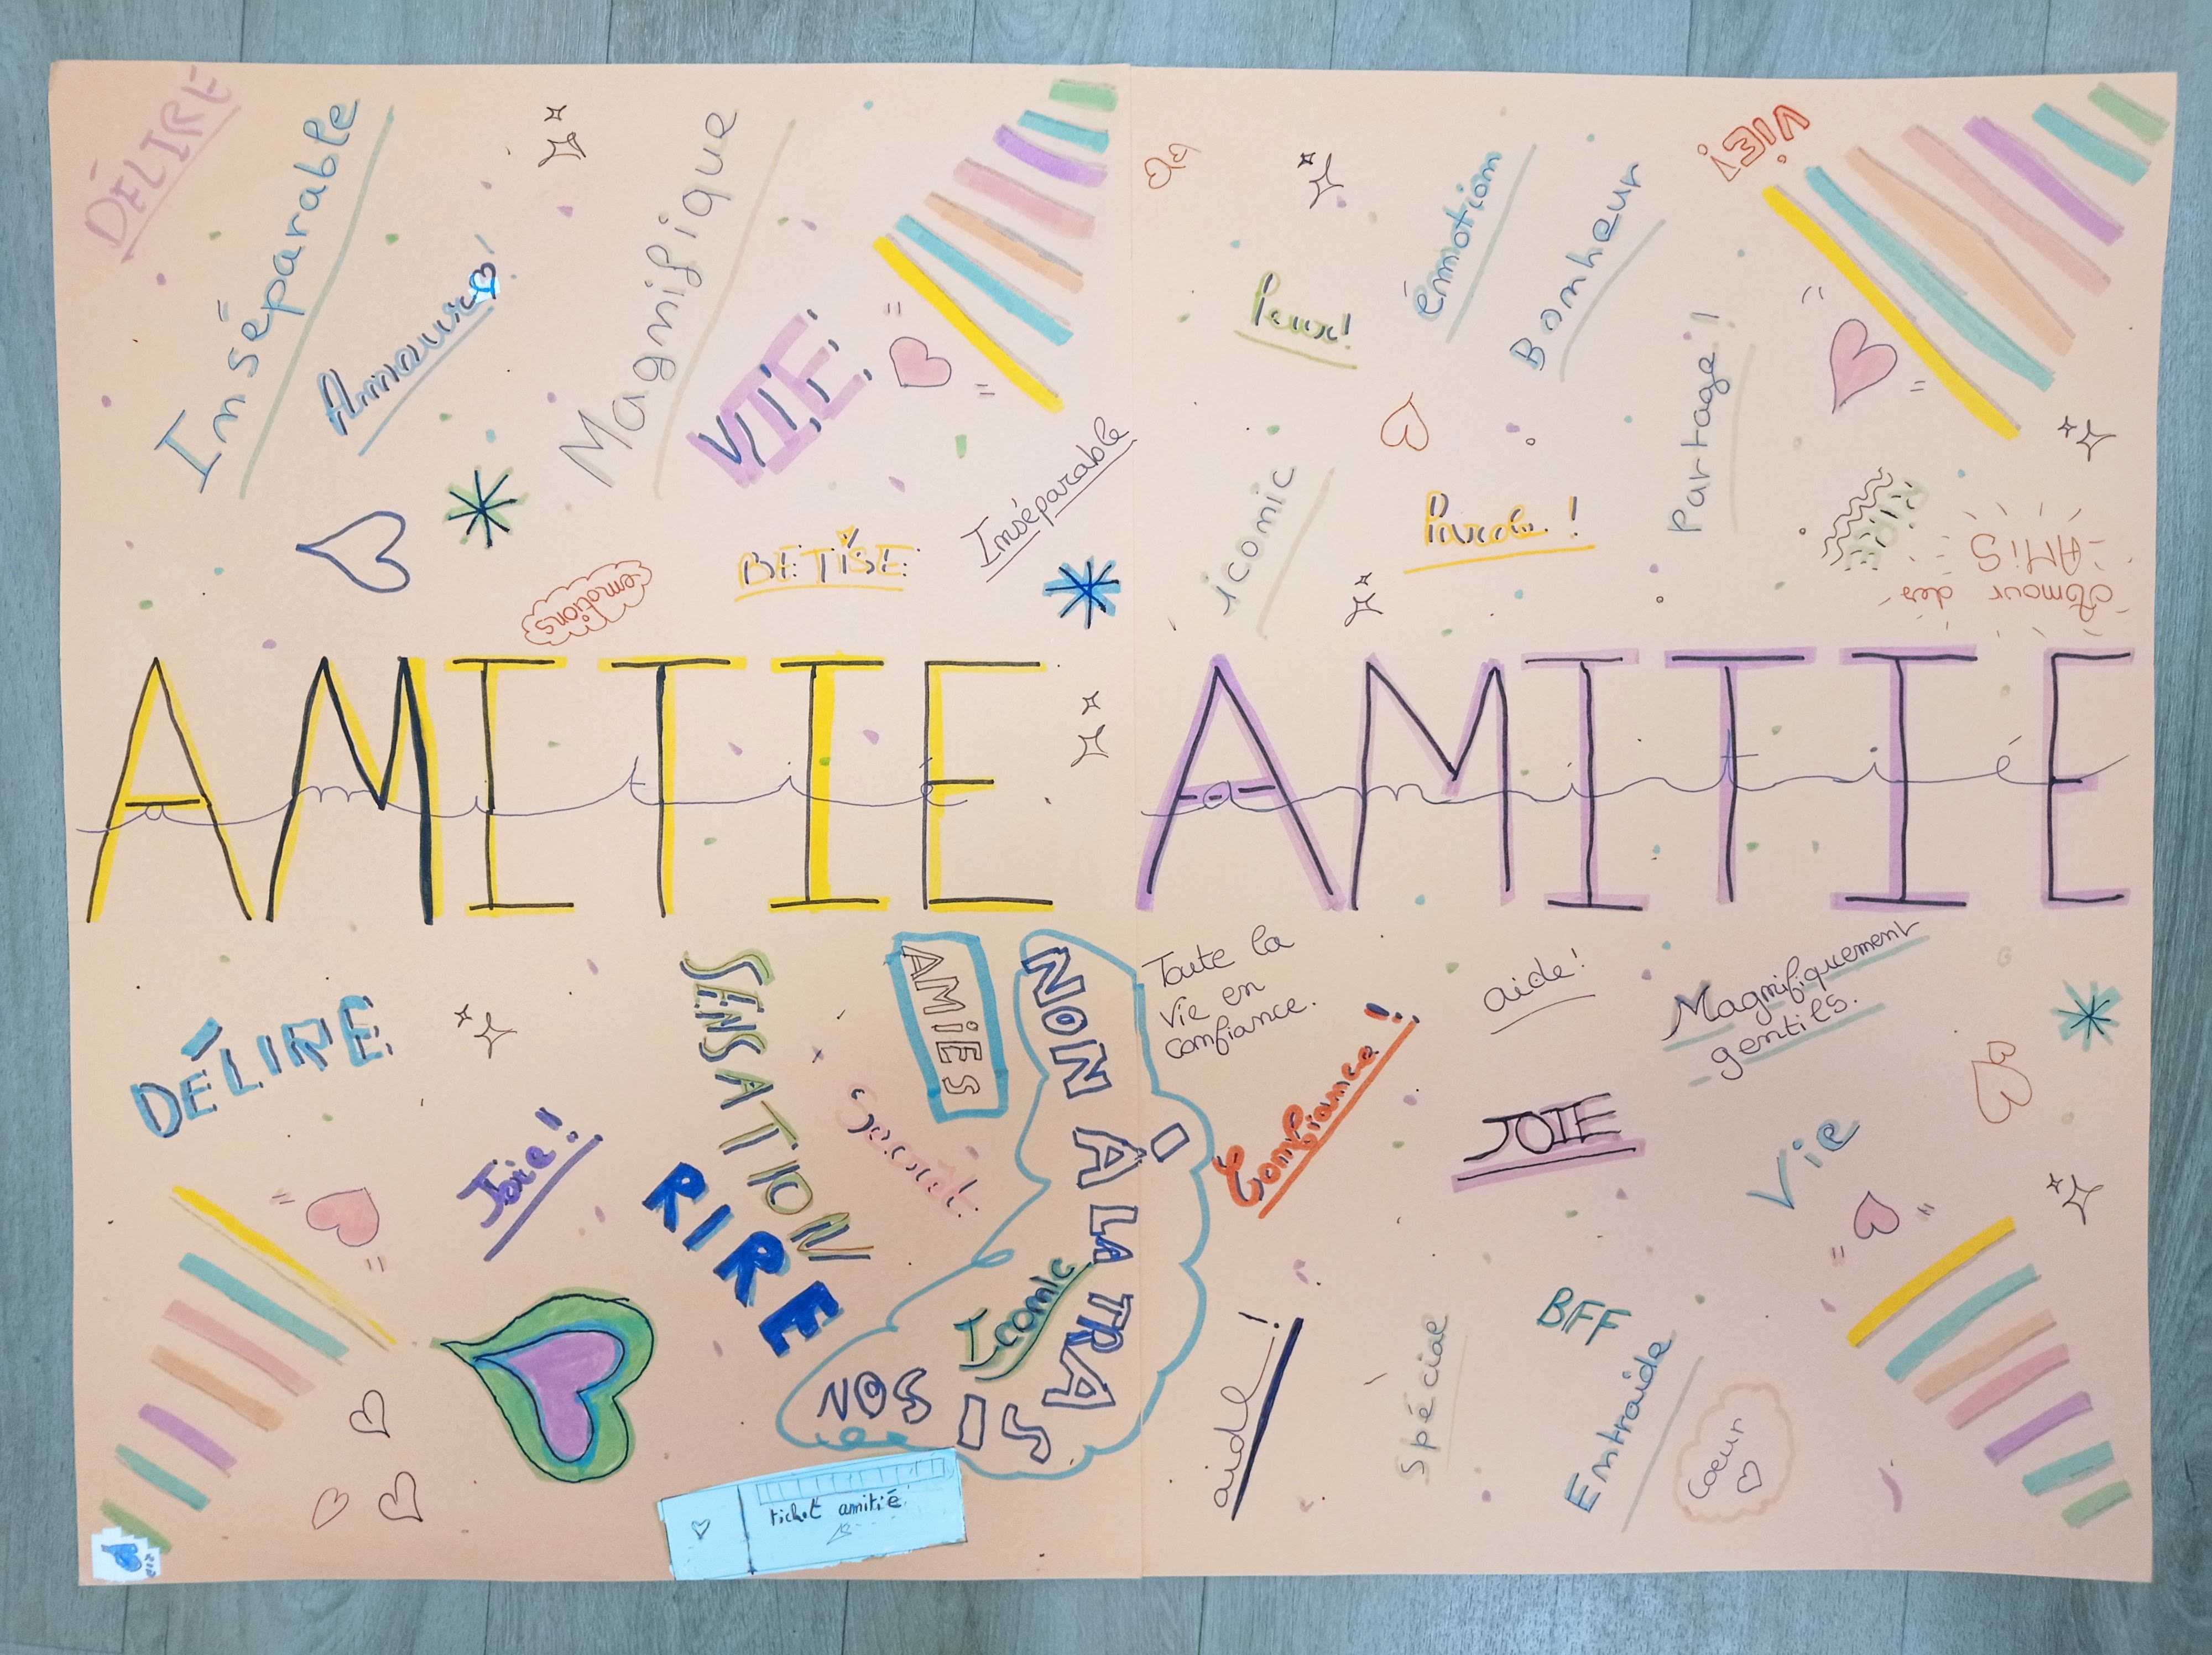 DÉLIRE
Inséparable
Magnifique
VIE
BETISE
Inséparable
émotions
émotion
Bonheur
VIE!
Partage!
iconic
Parole!
Amour des
AMIS
AMITIE
amitié
AMITIE
amitié
DÉLIRE
Joie!
SENSATION
RIRE
Secret
AMIES
NON À LA TRA
Iconic
Toute la
vie en
confiance.
Confiance!
aide!
Magnifiquement
gentils.
JOIE
Vie
aide!
Spécial
BFF
Entraide
Coeur
ticket amitié